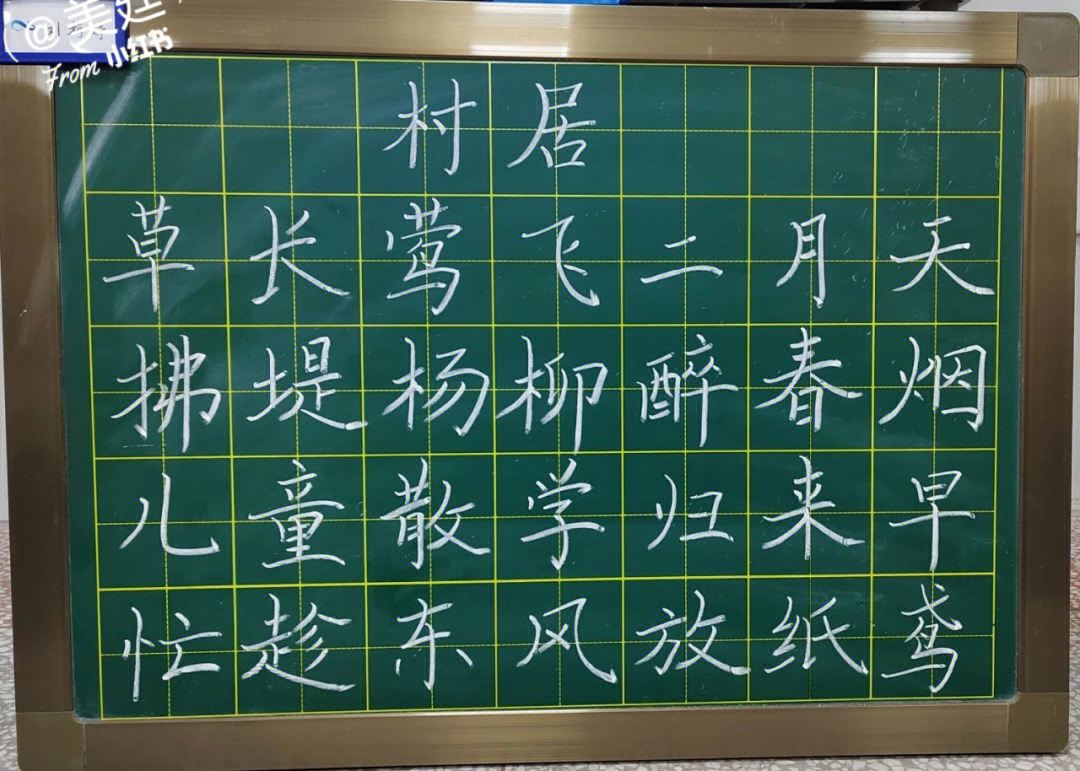 @美廷
From 小红书
村居
草长莺飞二月天
拂堤杨柳醉春烟
儿童散学归来早
忙趁东风放纸鸢